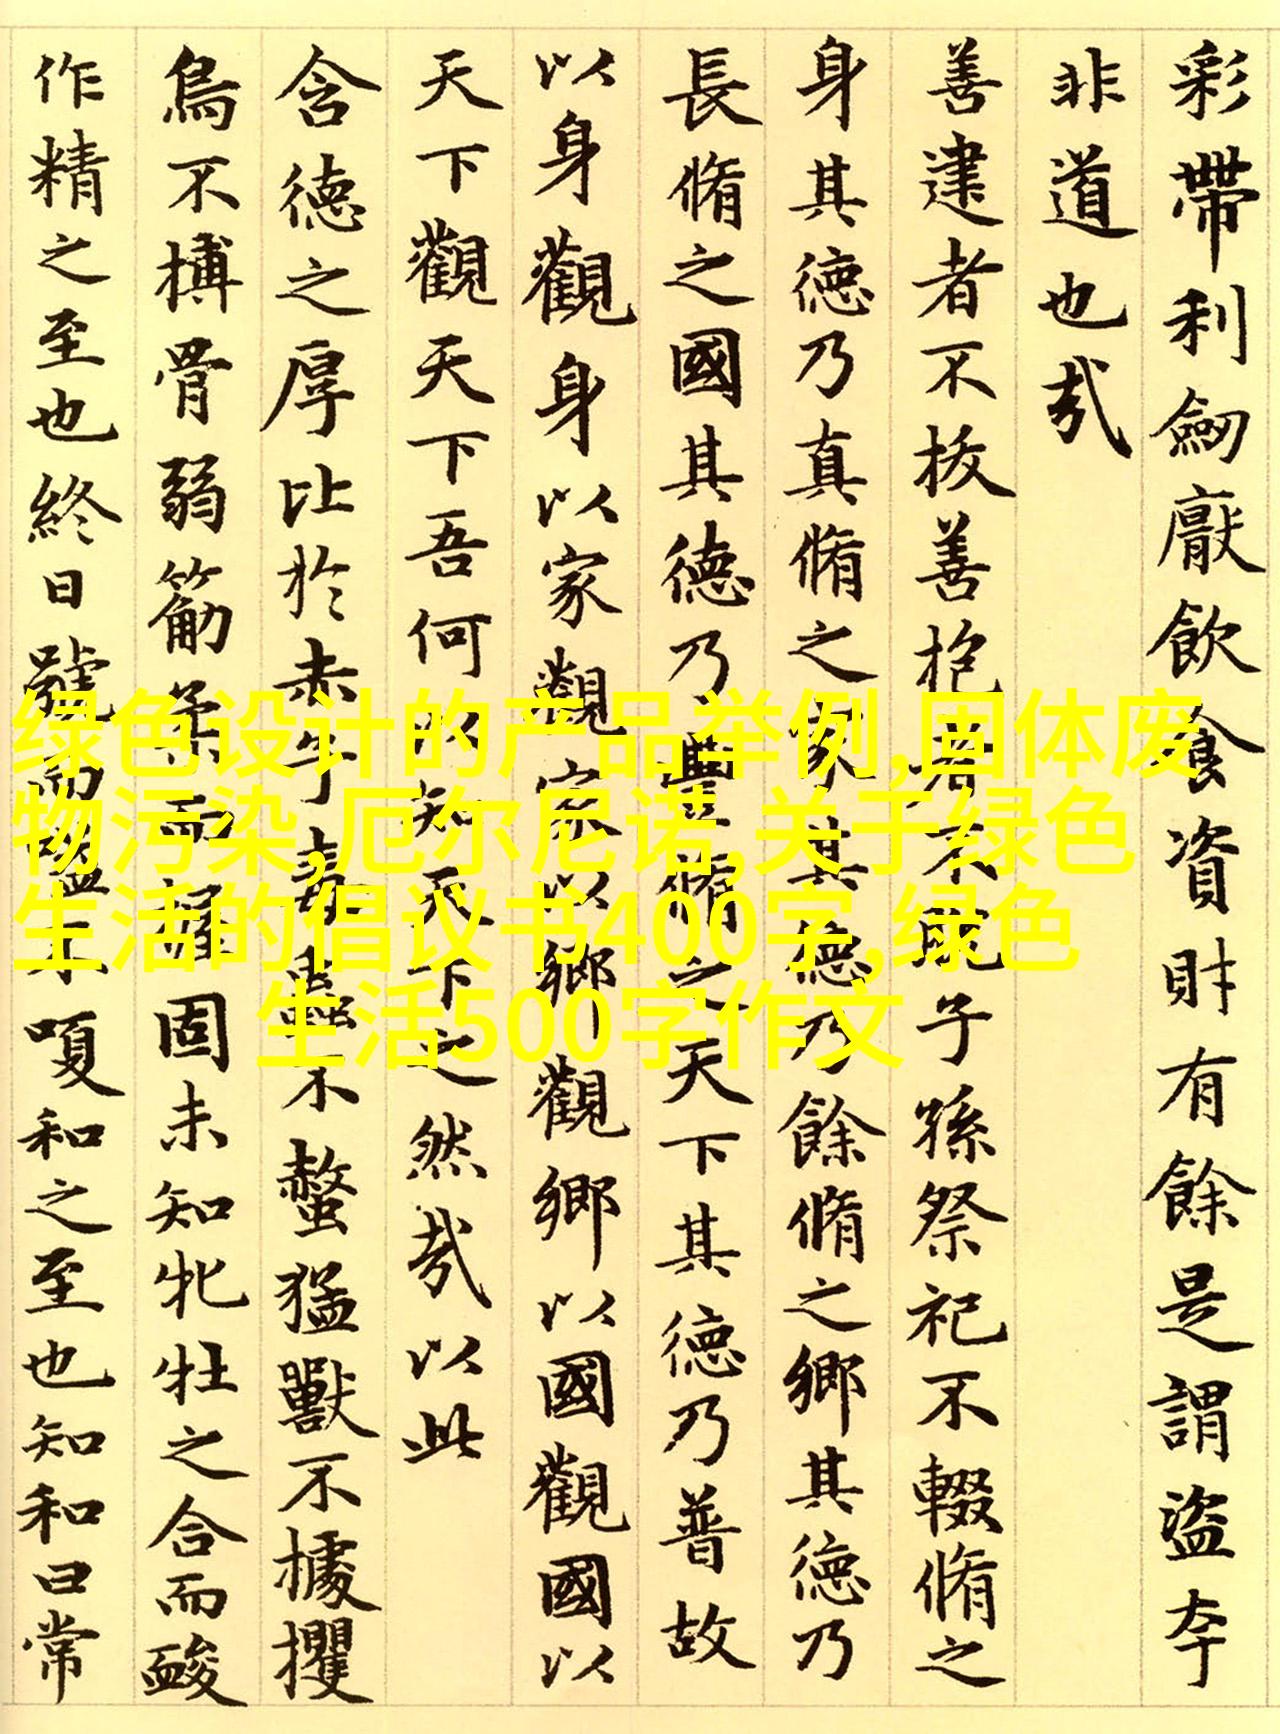 彩帶利劒厭飲食資財有餘是謂盜夸
非道也哉
善建者不拔善抱者不脫子孫祭祀不輟脩之
身其德乃真脩之家其德乃餘脩之鄉其德乃
長脩之國其德乃豐脩之天下其德乃普故
以身觀身以家觀家以鄉觀鄉以國觀國以
天下觀天下吾何以知天下之然哉以此
含德之厚比於赤子毒蟲不螫猛獸不據攫
鳥不搏骨弱筋柔而握固未知牝牡之合而䘒
作精之至也終日號而嗌不嗄和之至也知和曰常
绿色设计的产品举例,固体废
物污染,厄尔尼诺,关于绿色
生活的倡议书400字,绿色
生活500字作文